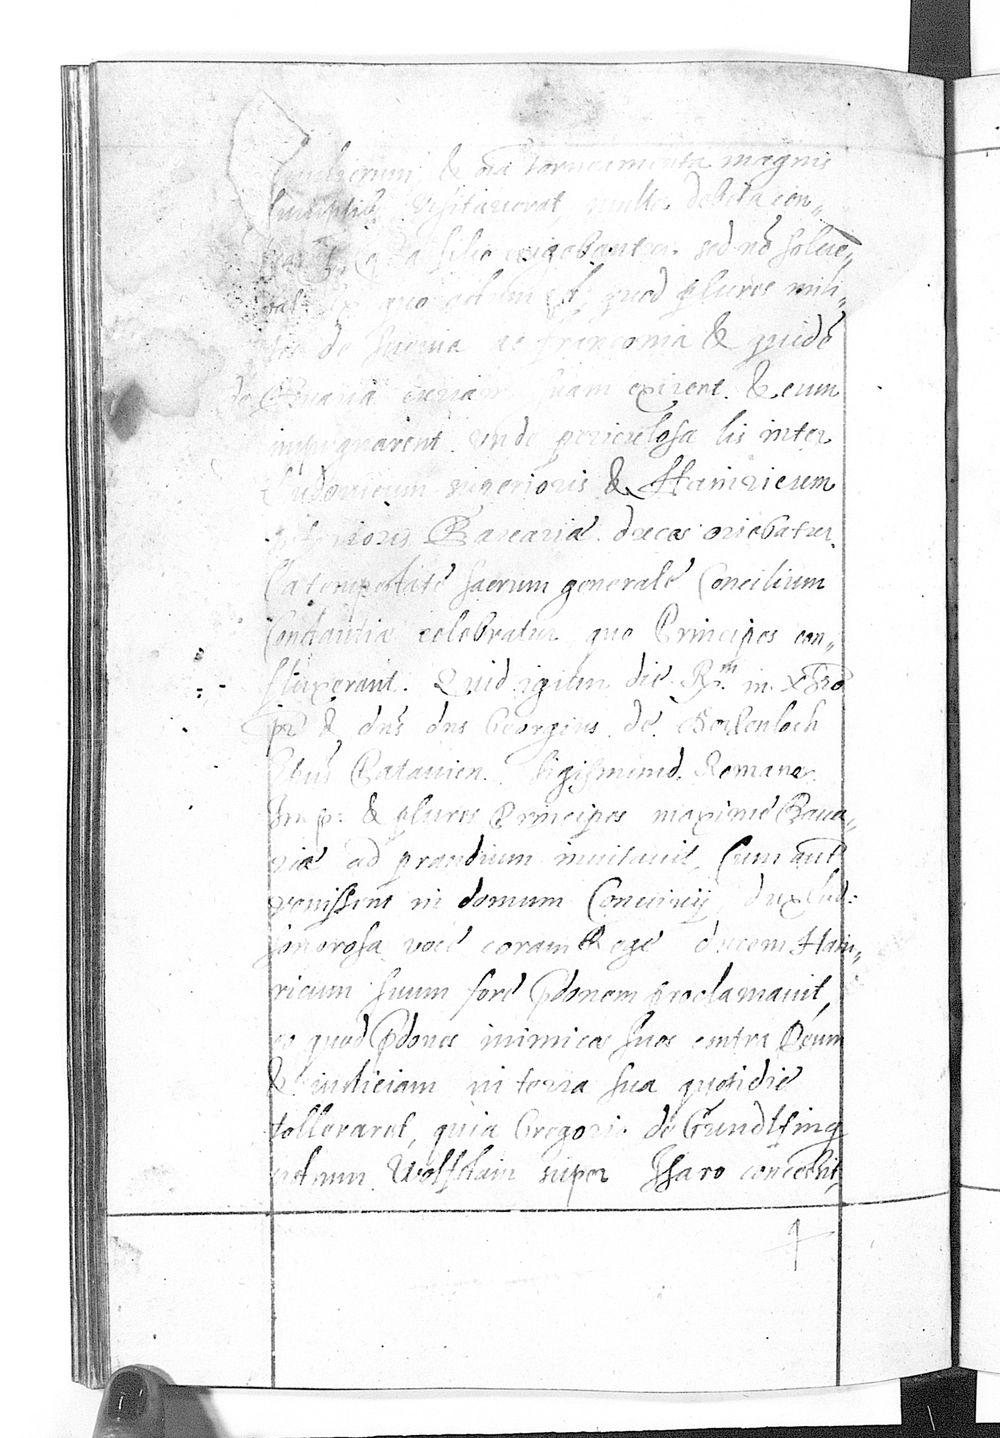 & o͞ia torneamenta magnis
sumptib9 visitauerat, multa debita con„
filio exigebantur sed nō solue„
bat ex quo actum est, quod plures mili„
tes de Sueuia ac franconia & quidē
de Bauaria curiam suam exirent. & eum
impugnarent unde periculosa lis inter
Ludouicum superioris & Hainricum
inferioris Bauariæ duces oriebatur.
Ea tempestate sacrum generale Concilium
Constantiæ celebratur, quo Principes con„
fluxerant. Quid igitur die Rx.m in Chr̄o
pr & dn̄s dns Georgius de Hochenloch
Ep̄us Patauien. Sigismund. Romanor.
Imp: & plures Principes maxime Baua„
riæ ad prandium inuitauit, Cum aut̄
venissent in domum Conuiuij, dux Lud:
sonorosa voce coram Rege ducem Hain„
ricum suum fore p̄donem proclamauit,
eo quod p̄dones inimicos suos contra Deum
& iusticiam in terra sua quotidie
tolleraret, quia Gregorio de Gundlfing
castrum Wolfstain super Isaro concessit,
9